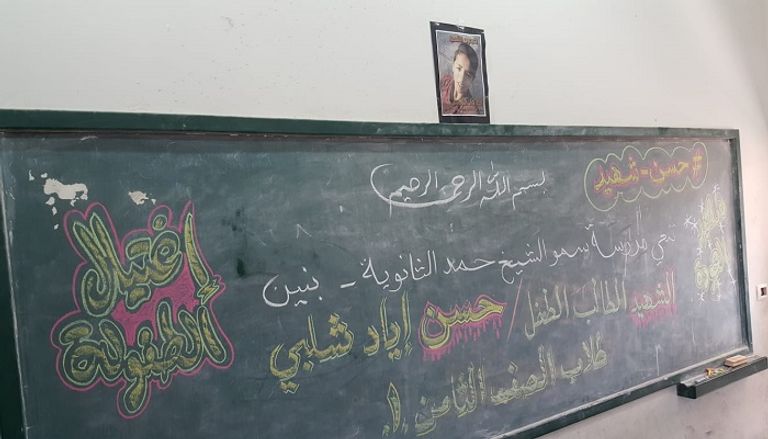 #حسن_شهيد
بسم الله الرحمن الرحيم
تنعى مدرسة سمو الشيخ حمد الثانوية - بنين
الشهيد الطالب الطفل / حسن إياد شلبي
طلاب الصف الثامن 1.
إغتيال
الطفولة